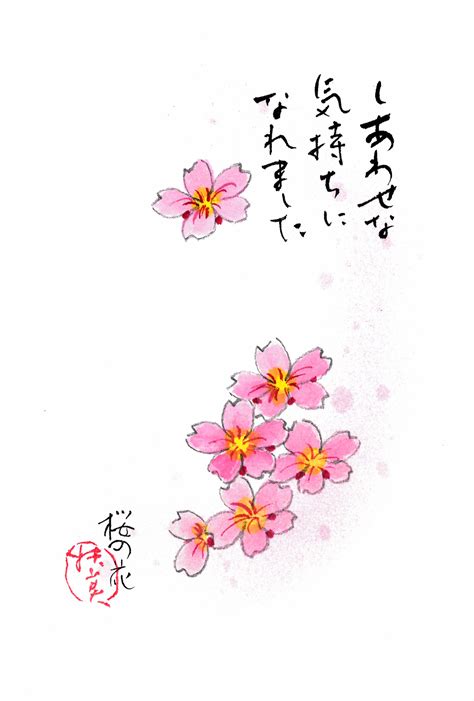 しあわせな
気持ちに
なれました
桜の花
扶美